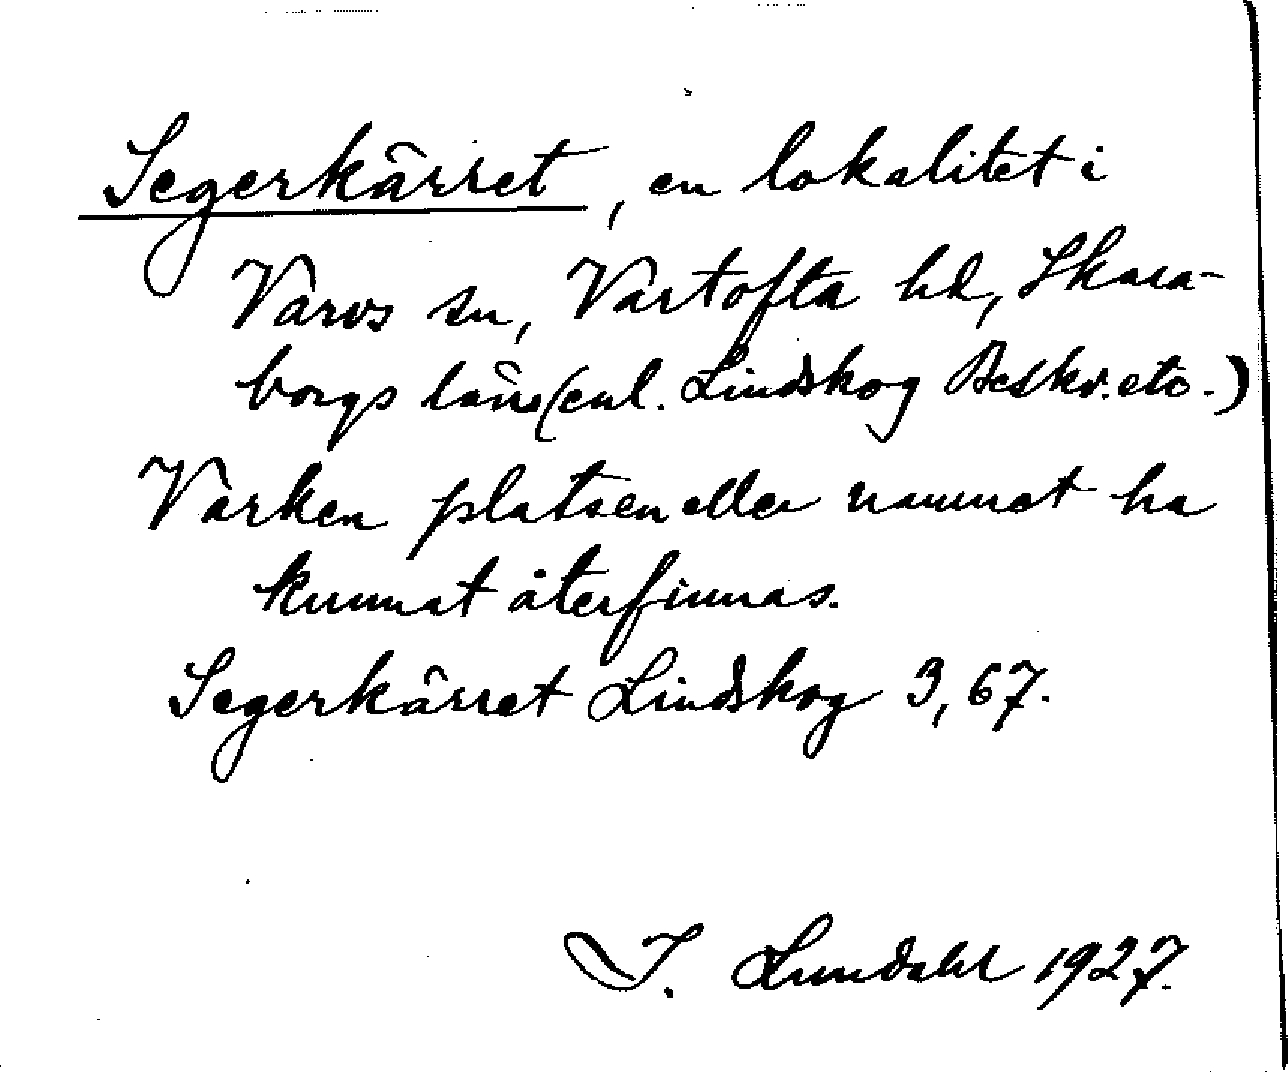 Segerkärret, en lokalitet i
Varvs sn, Vartofta hd, Skara-
borgs län (enl. Lindskog Beskr. etc.)
Varken platsen eller namnet ha
kunnat återfinnas.
Segerkärret Lindskog 3, 67.
I. Lundahl 1927.